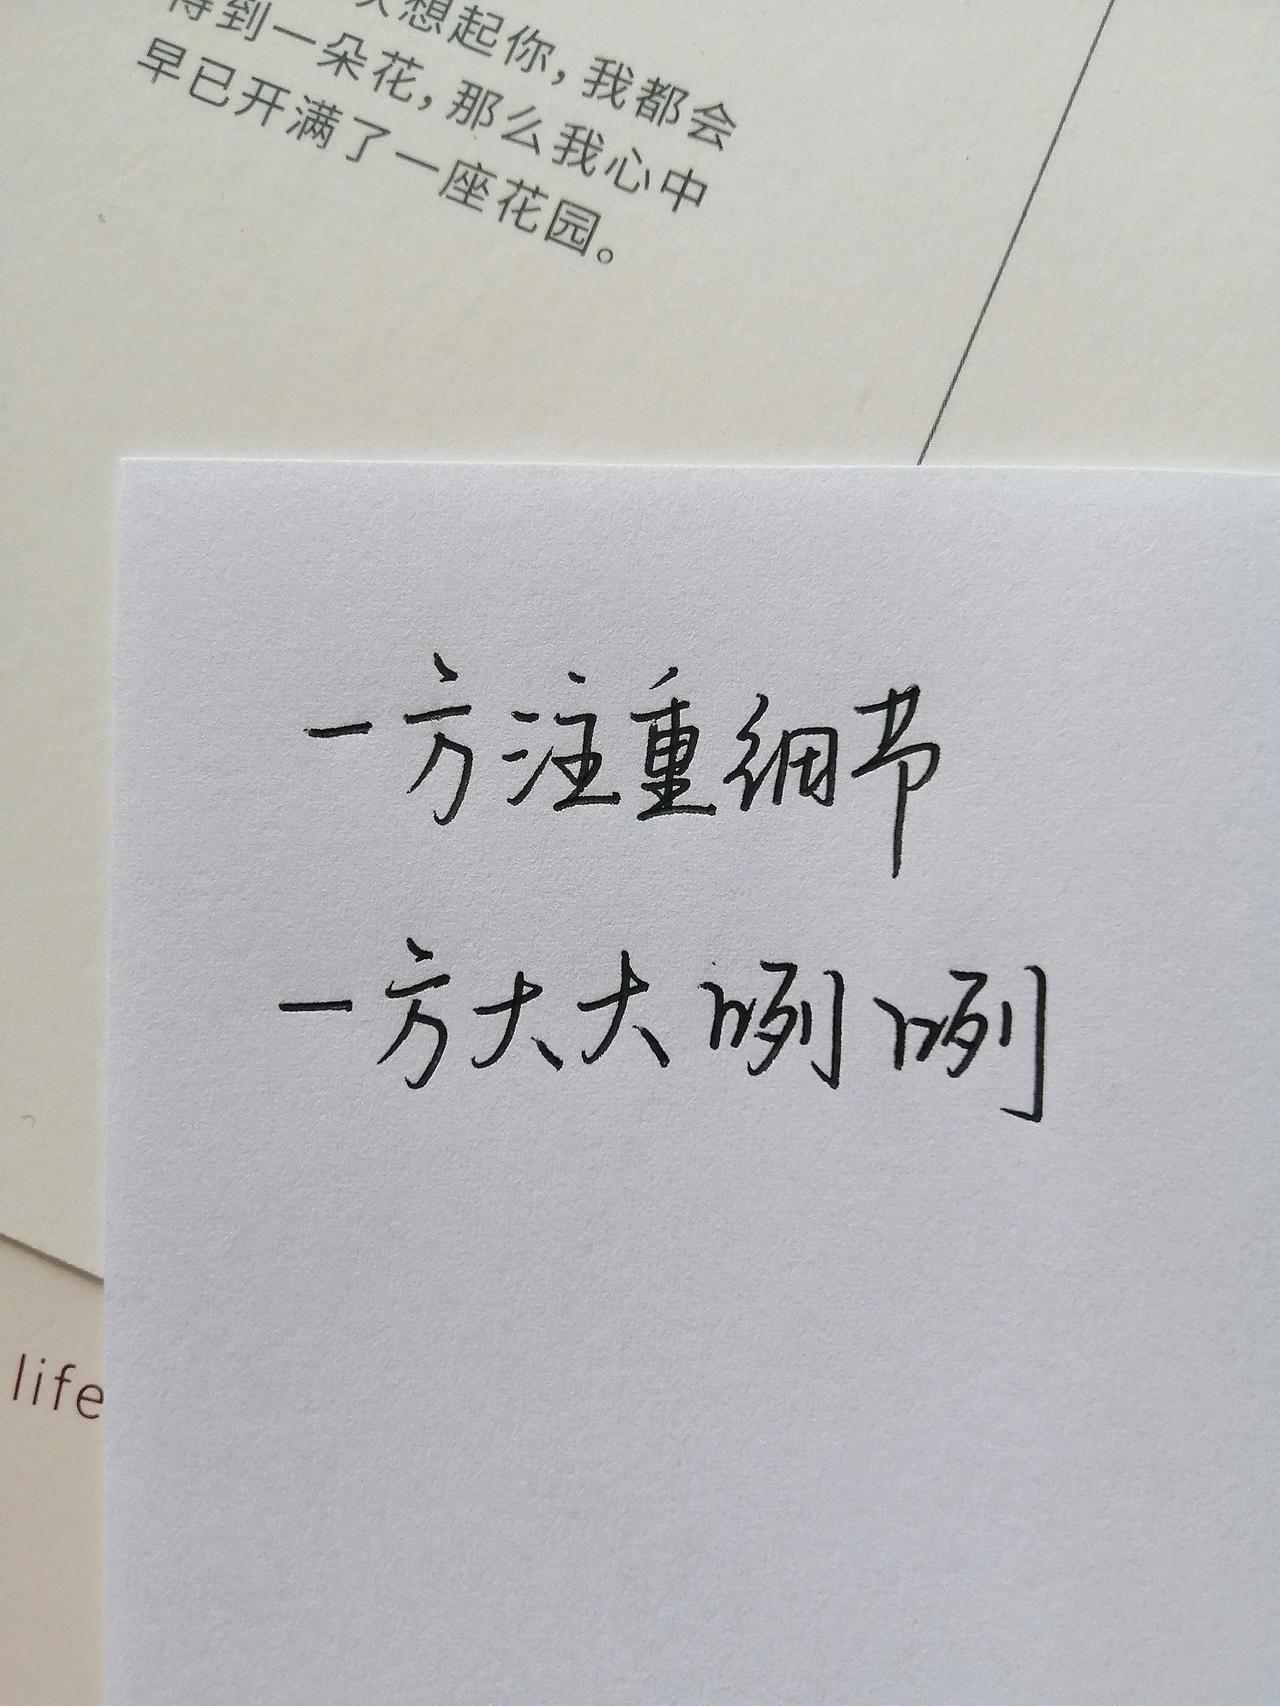 想起你，我都会
得到一朵花，那么我心中
早已开满了一座花园。
一方注重细节
一方大大咧咧
life